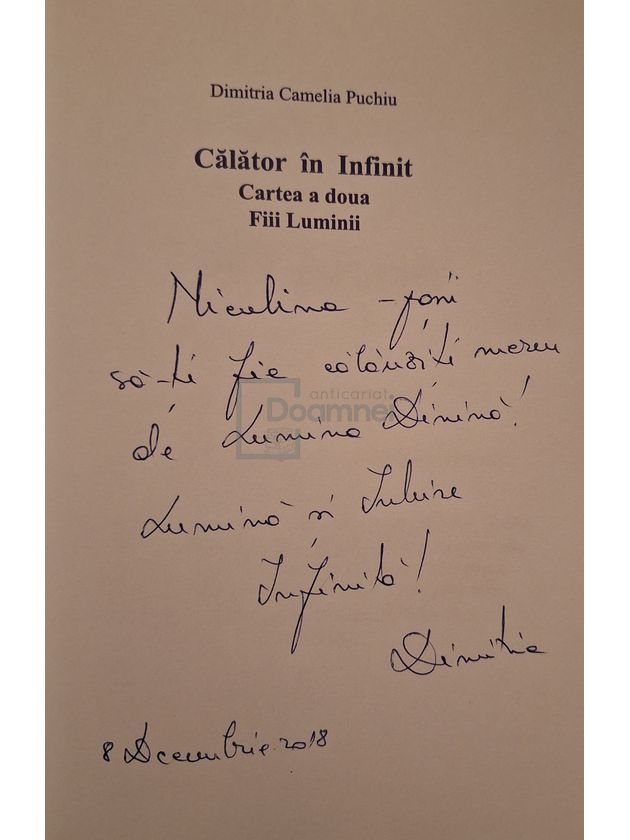 Dimitria Camelia Puchiu
Călător în Infinit
Cartea a doua
Fiii Luminii
Niculina - pașii
să-ți fie călăuziți mereu
anticariat
Doamnei
de Lumina Divină!
Lumină și Iubire
Infinită!
Dimitria
8 Decembrie 2018